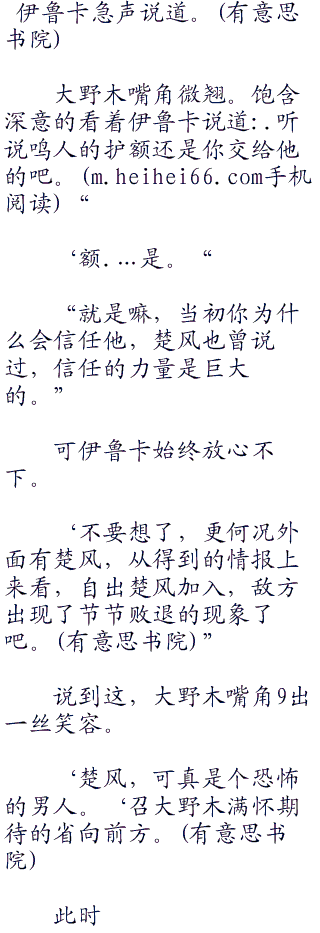 伊鲁卡急声说道。(有意思
书院)
大野木嘴角微翘。饱含
深意的看着伊鲁卡说道:.听
说鸣人的护额还是你交给他
的吧。(m.heihei66.com手机
阅读)“
‘额....是。“
“就是嘛，当初你为什
么会信任他，楚风也曾说
过，信任的力量是巨大
的。”
可伊鲁卡始终放心不
下。
‘不要想了，更何况外
面有楚风，从得到的情报上
来看，自出楚风加入，敌方
出现了节节败退的现象了
吧。(有意思书院)”
说到这，大野木嘴角9出
一丝笑容。
‘楚风，可真是个恐怖
的男人。‘召大野木满怀期
待的省向前方。(有意思书
院)
此时